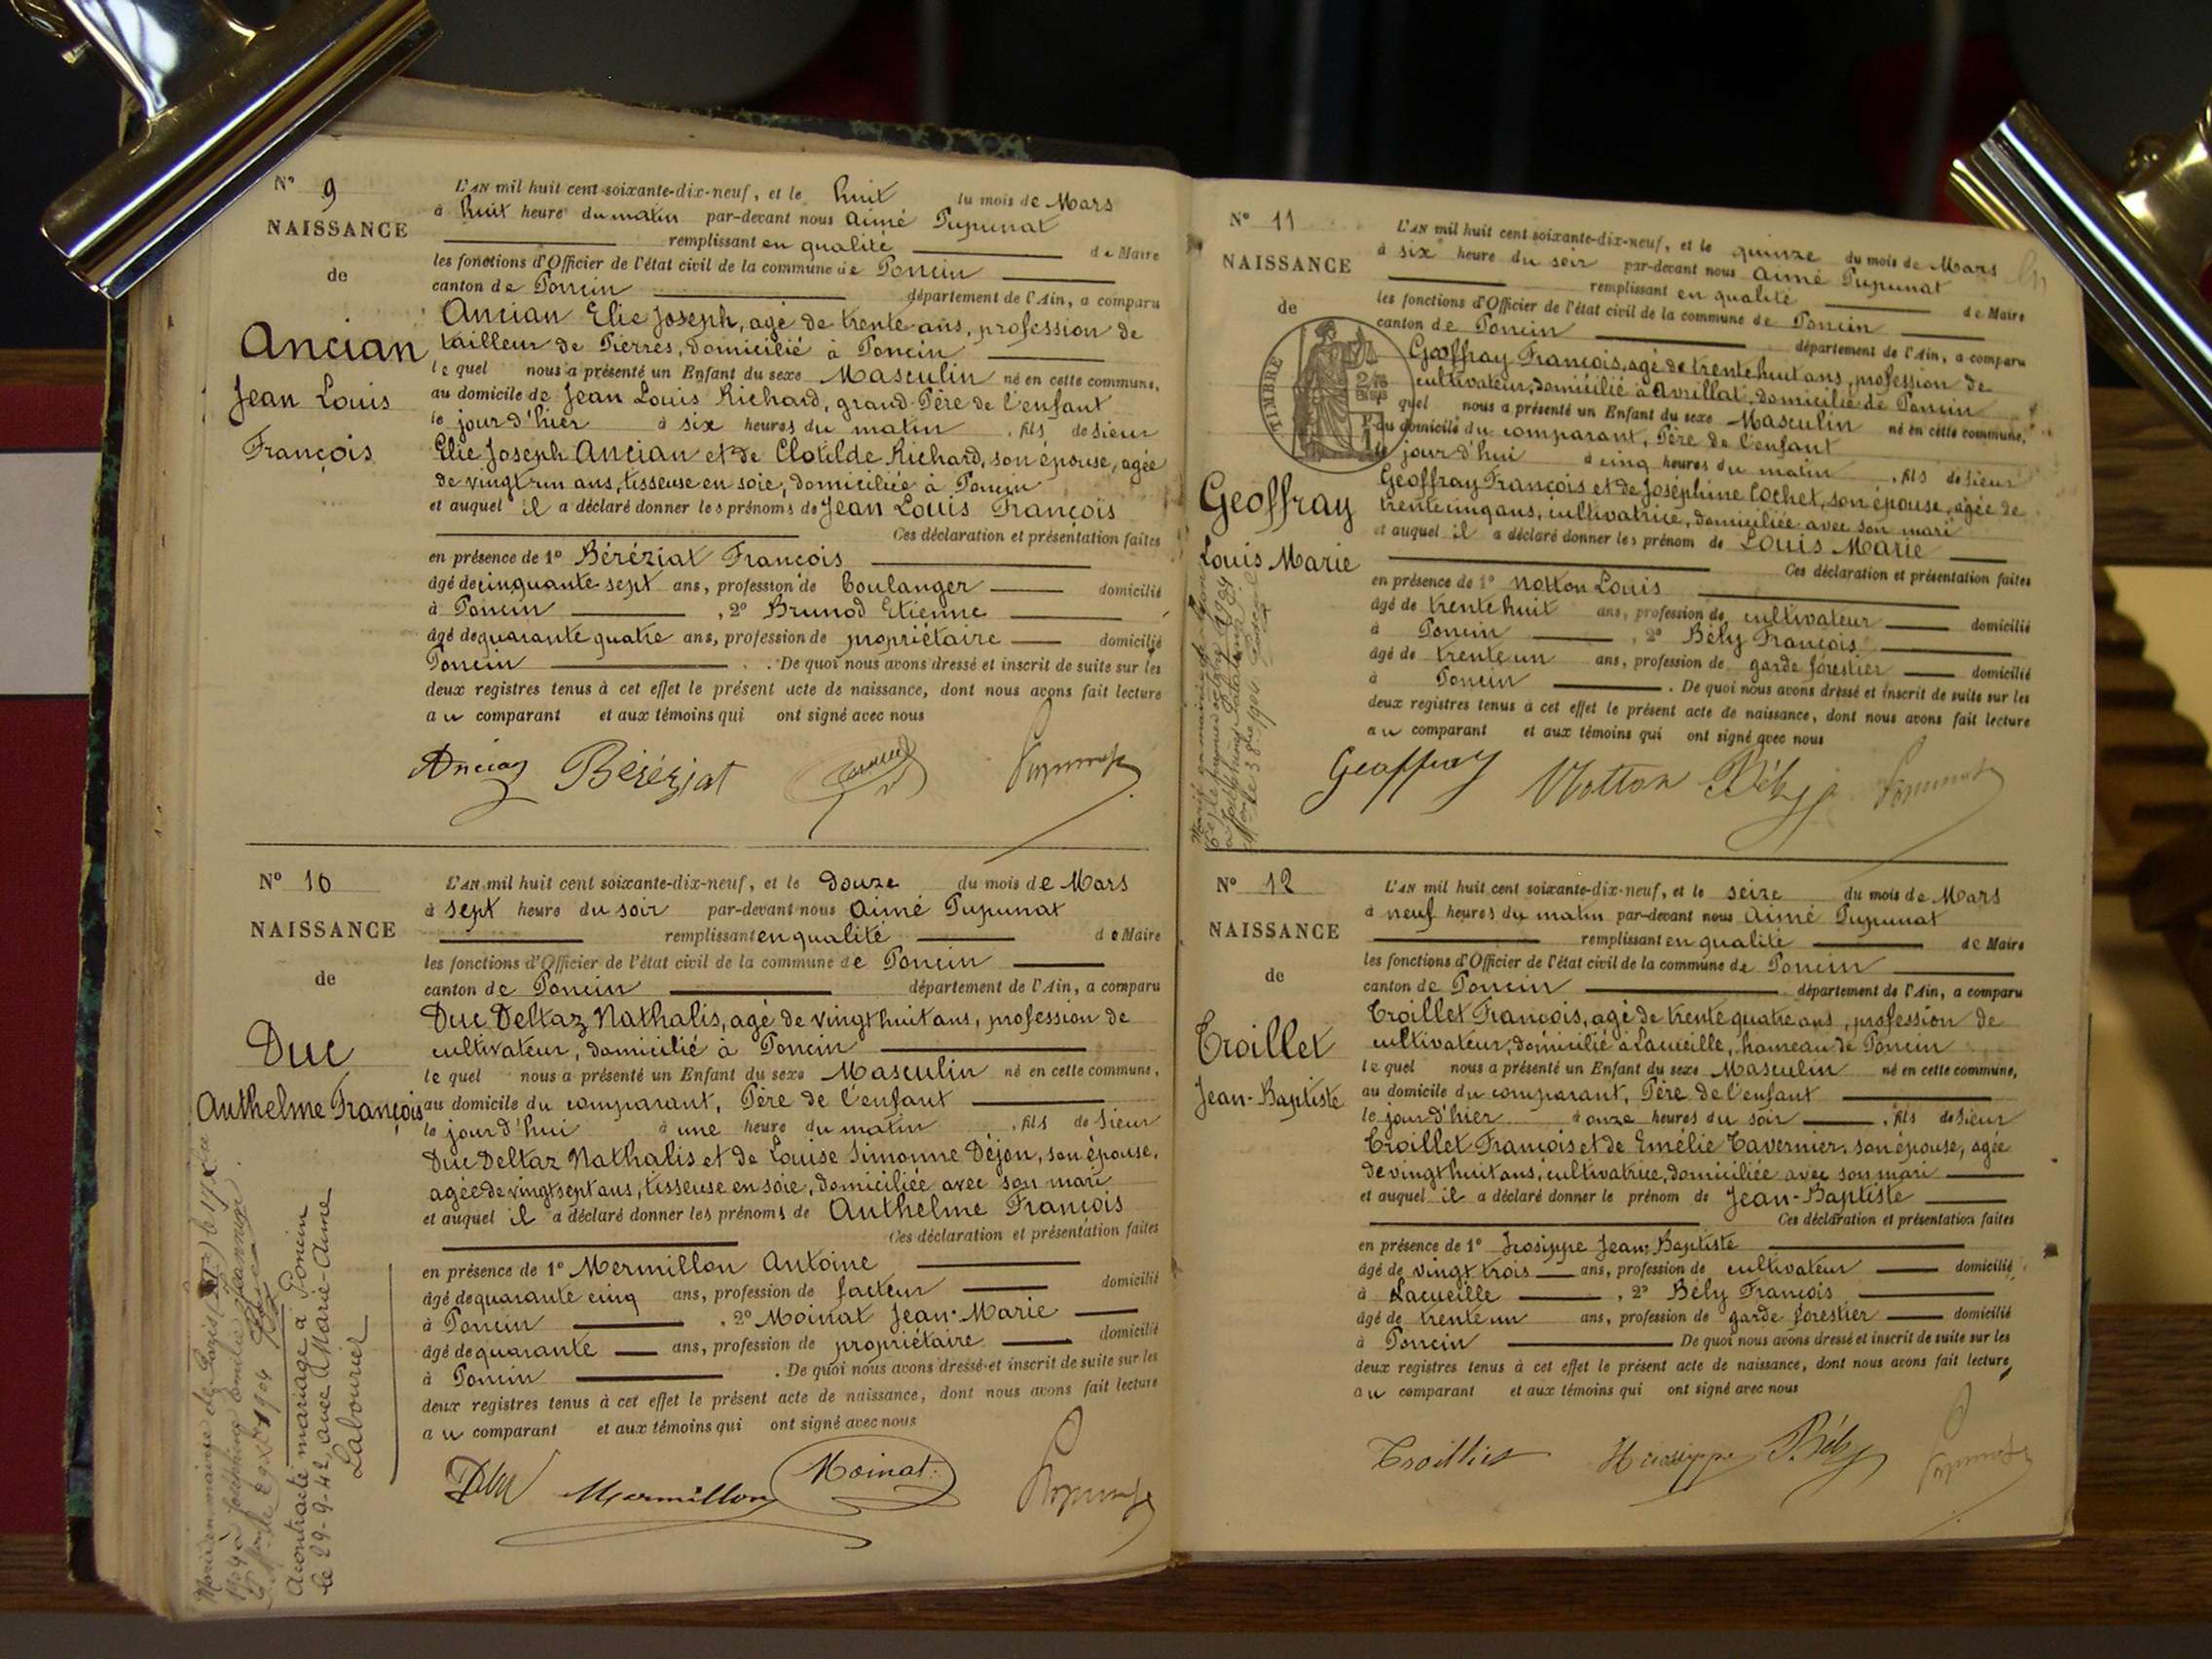 N° 9
NAISSANCE
de
Ancian
Jean Louis
François
L'AN mil huit cent soixante-dix-neuf, et le huit du mois de Mars
à huit heure du matin par-devant nous Aimé Pupunat
remplissant en qualité de Maire
les fonctions d'Officier de l'état civil de la commune de Poncin
canton de Poncin département de l'Ain, a comparu
Ancian Elie Joseph, agé de trente ans, profession de
tailleur de Pierres, domicilié à Poncin
le quel nous a présenté un Enfant du sexe Masculin né en cette commune,
au domicile de Jean Louis Richard, grand-Père de l'enfant
le jour d'hier à six heures du matin, fils de Sieur
Elie Joseph Ancian et de Clotilde Richard, son épouse, agée
de vingt un ans, tisseuse en soie, domiciliée à Poncin
et auquel il a déclaré donner les prénoms de Jean Louis François
Ces déclaration et présentation faites
en présence de 1° Béréziat François
âgé de cinquante sept ans, profession de boulanger domicilié
à Poncin, 2° Brunod Etienne
âgé de quarante quatre ans, profession de propriétaire domicilié
Poncin. De quoi nous avons dressé et inscrit de suite sur les
deux registres tenus à cet effet le présent acte de naissance, dont nous avons fait lecture
au comparant et aux témoins qui ont signé avec nous
Ancian Béréziat Pupunat
N° 10
NAISSANCE
de
Duc
Anthelme François
L'AN mil huit cent soixante-dix-neuf, et le douze du mois de Mars
à sept heure du soir par-devant nous Aimé Pupunat
remplissant en qualité de Maire
les fonctions d'Officier de l'état civil de la commune de Poncin
canton de Poncin département de l'Ain, a comparu
Duc Deltaz Nathalis, agé de vingt huit ans, profession de
cultivateur, domicilié à Poncin
le quel nous a présenté un Enfant du sexe Masculin né en cette commune,
au domicile du comparant, Père de l'enfant
le jour d'hui à une heure du matin, fils de Sieur
Duc Deltaz Nathalis et de Louise Simonne Déjon, son épouse,
agée de vingt sept ans, tisseuse en soie, domiciliée avec son mari
et auquel il a déclaré donner les prénoms de Anthelme François
Ces déclaration et présentation faites
en présence de 1° Mermillon Antoine
âgé de quarante cinq ans, profession de facteur domicilié
à Poncin, 2° Moinat Jean-Marie
âgé de quarante ans, profession de propriétaire domicilié
à Poncin. De quoi nous avons dressé et inscrit de suite sur les
deux registres tenus à cet effet le présent acte de naissance, dont nous avons fait lecture
au comparant et aux témoins qui ont signé avec nous
Duc Mermillon Moinat Pupunat
A contracté mariage à Poncin
le 29-9-42, avec Marie-Anne
Labouriet
N° 11
NAISSANCE
de
TIMBRE
Geoffray
Louis Marie
L'AN mil huit cent soixante-dix-neuf, et le quinze du mois de Mars
à six heure du soir par-devant nous Aimé Pupunat
remplissant en qualité de Maire
les fonctions d'Officier de l'état civil de la commune de Poncin
canton de Poncin département de l'Ain, a comparu
Geoffray François, agé de trente huit ans, profession de
cultivateur, domicilié à Avrillat, domicilié de Poncin
quel nous a présenté un Enfant du sexe Masculin né en cette commune,
au domicile du comparant, Père de l'enfant
le jour d'hui à cinq heures du matin, fils de Sieur
Geoffray François et de Joséphine Cochet, son épouse, agée de
trente cinq ans, cultivatrice, domiciliée avec son mari
et auquel il a déclaré donner les prénom de Louis Marie
Ces déclaration et présentation faites
en présence de 1° Notton Louis
âgé de trente huit ans, profession de cultivateur domicilié
à Poncin, 2° Bély François
âgé de trente un ans, profession de garde forestier domicilié
à Poncin. De quoi nous avons dressé et inscrit de suite sur les
deux registres tenus à cet effet le présent acte de naissance, dont nous avons fait lecture
au comparant et aux témoins qui ont signé avec nous
Geoffray Notton Bély Pupunat
N° 12
NAISSANCE
de
Troillet
Jean-Baptiste
L'AN mil huit cent soixante-dix-neuf, et le seize du mois de Mars
à neuf heures du matin par-devant nous Aimé Pupunat
remplissant en qualité de Maire
les fonctions d'Officier de l'état civil de la commune de Poncin
canton de Poncin département de l'Ain, a comparu
Troillet François, agé de trente quatre ans, profession de
cultivateur, domicilié à Lacueille, hameau de Poncin
le quel nous a présenté un Enfant du sexe Masculin né en cette commune,
au domicile du comparant, Père de l'enfant
le jour d'hier à onze heures du soir, fils de Sieur
Troillet François et de Emélie Tavernier, son épouse, agée
de vingt huit ans, cultivatrice, domiciliée avec son mari
et auquel il a déclaré donner le prénom de Jean-Baptiste
Ces déclaration et présentation faites
en présence de 1° Jean-Baptiste
âgé de vingt trois ans, profession de cultivateur domicilié
à Lacueille, 2° Bély François
âgé de trente un ans, profession de garde forestier domicilié
à Poncin De quoi nous avons dressé et inscrit de suite sur les
deux registres tenus à cet effet le présent acte de naissance, dont nous avons fait lecture
au comparant et aux témoins qui ont signé avec nous
Troilliet Bély Pupunat